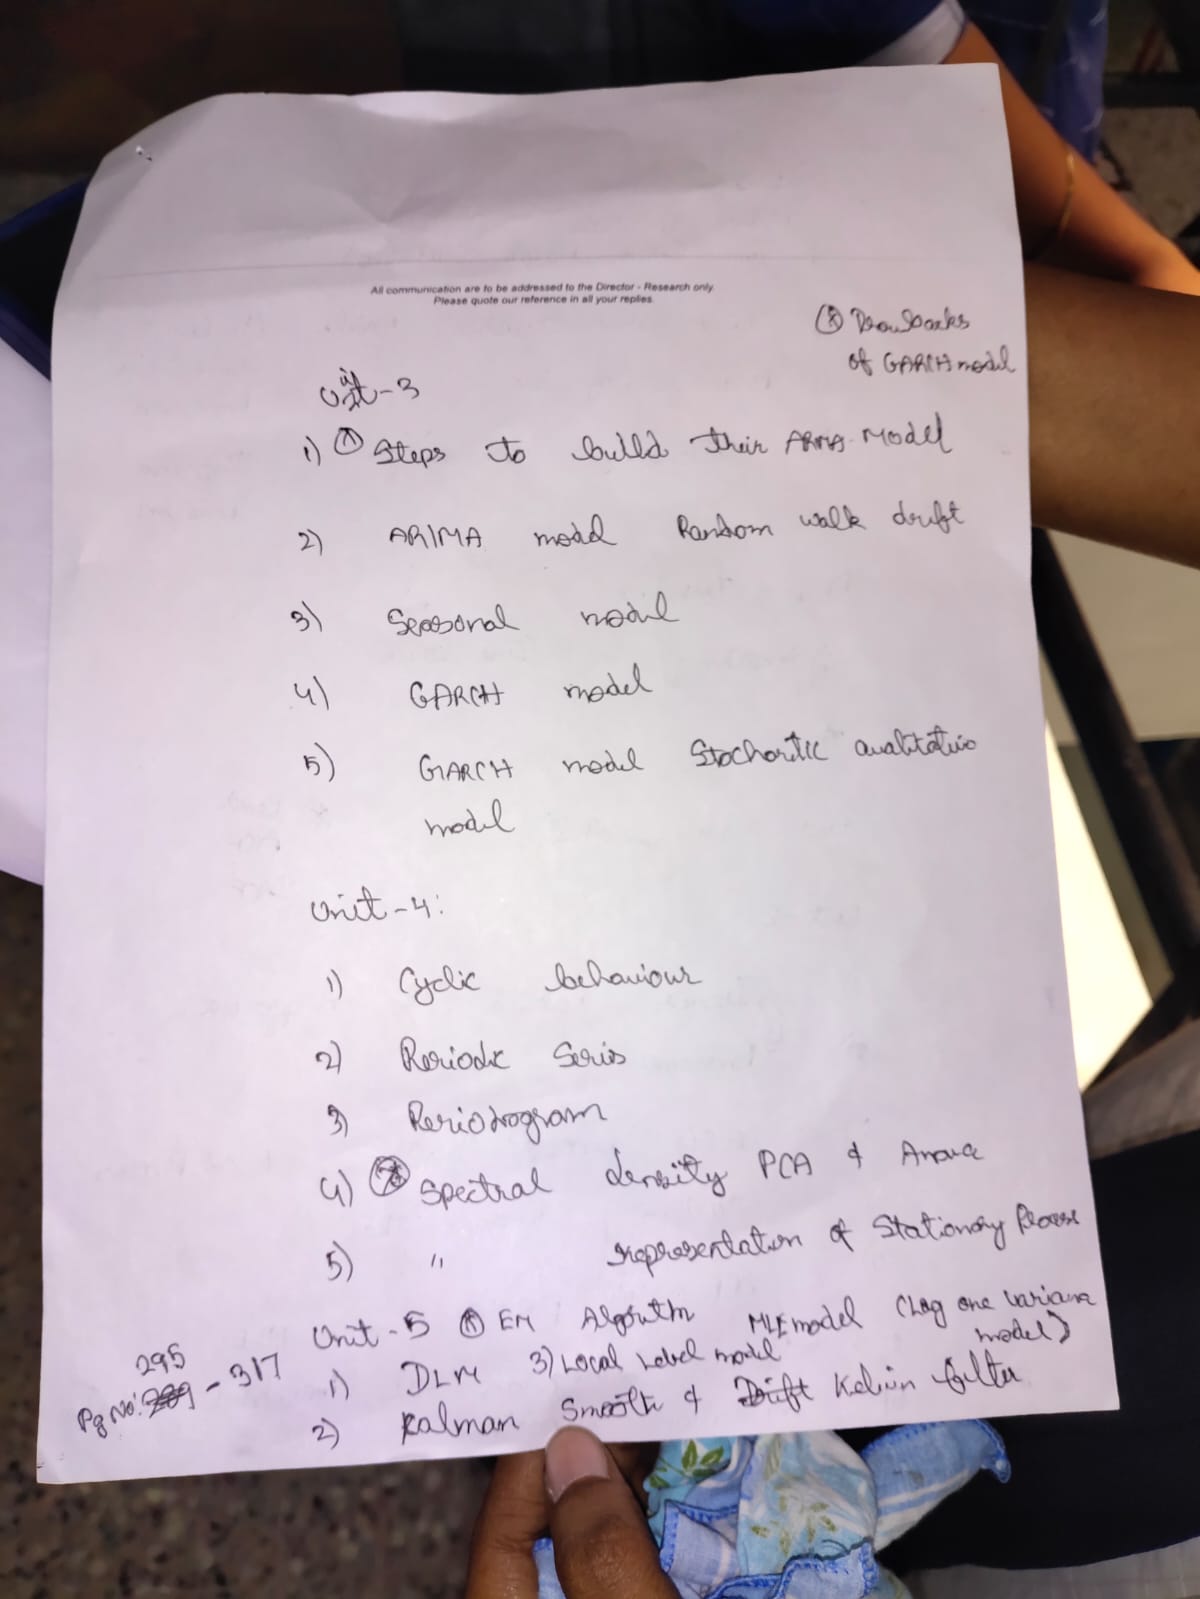 All communication are to be addressed to the Director - Research only.
Please quote our reference in all your replies.
Drawbacks
of GARCH model
Unit-3
1) Steps to build their ARMA Model
2) ARIMA model Random walk drift
3) Seasonal model
4) GARCH model
5) GARCH model Stochoritic
model
Unit-4:
1) Cyclic behaviour
2) Periodic Series
3) Periodogram
4) Spectral density PCA & Anova
5) " representation of Stationary Process
Unit-5 EM Algorithm MLE model (Lag one variance
model)
1) DLM 3) Local Lebel model
2) Kalman Smooth & filter
295
Pg No: - 317